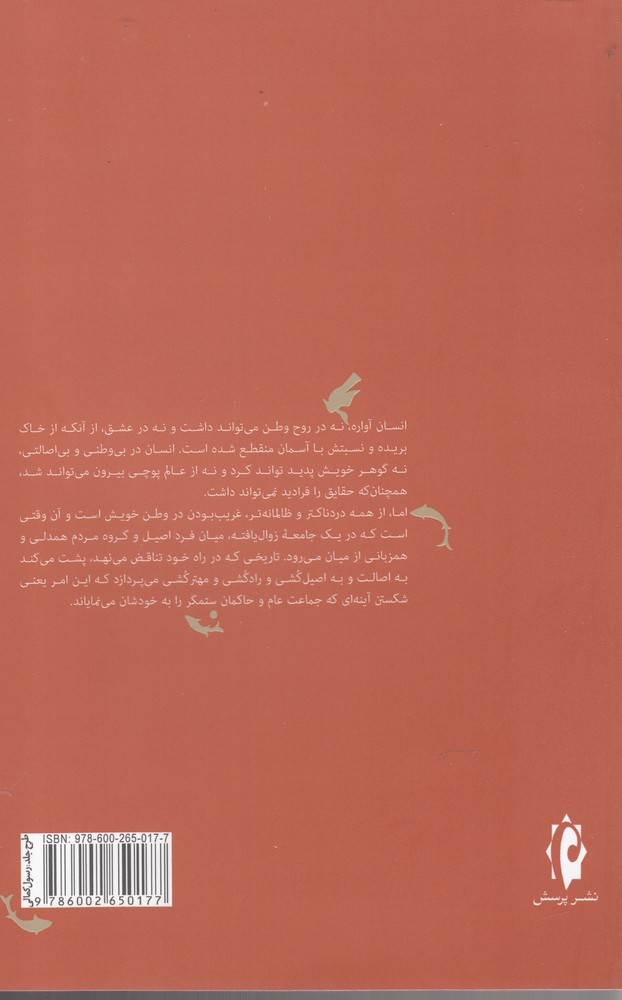 انسان آواره، نه در روح وطن می‌تواند داشت و نه در عشق، از آنکه از خاک
بریده و نسبتش با آسمان منقطع شده است. انسان در بی‌وطنی و بی‌اصالتی،
نه گوهر خویش پدید تواند کرد و نه از عالم پوچی بیرون می‌تواند شد،
همچنان‌که حقایق را فرادید نمی‌تواند داشت.
اما، از همه دردناکتر و ظالمانه‌تر، غریب‌بودن در وطن خویش است و آن وقتی
است که در یک جامعهٔ زوال‌یافته، میان فرد اصیل و گروه مردم همدلی و
همزبانی از میان می‌رود. تاریخی که در راه خود تناقض می‌نهد، پشت می‌کند
به اصالت و به اصیل‌کُشی و رادکُشی و مهترکُشی می‌پردازد که این امر یعنی
شکستن آینه‌ای که جماعت عام و حاکمان ستمگر را به خودشان می‌نمایاند.
طرح جلد: رسول کمالی
ISBN: 978-600-265-017-7
9 786002 650177
نشر پرسش